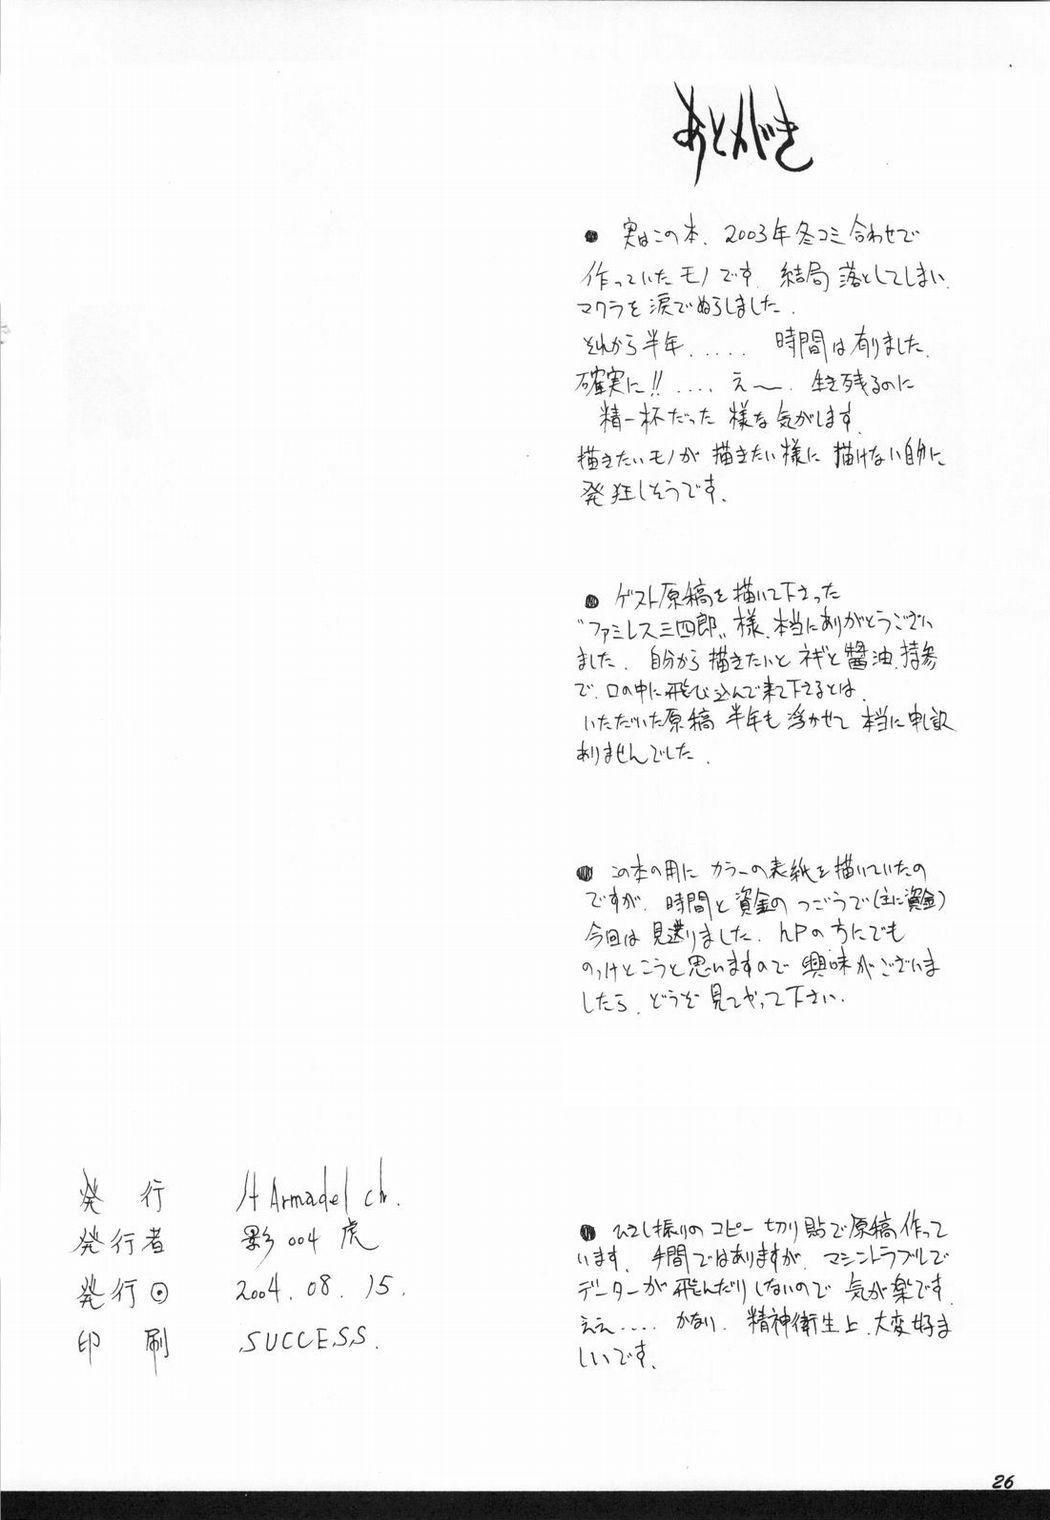 あとがき
● 実はこの本、2003年冬コミ合わせで
作っていたモノです。結局落としてしまい、
マクラを涙でぬらしました。
それから半年..... 時間は有りました。
確実に!!.... え〜、生き残るのに
精一杯だった様な気がします。
描きたいモノが描きたい様に描けない自分に
発狂しそうです。
● ゲスト原稿を描いて下さった
"ファミレス三四郎"様、本当にありがとうござい
ました。自分から描きたいとネギと醤油、持参
で、口の中に飛び込んで来て下さるとは、
いただいた原稿 半年も浮かせて 本当に申し訳
ありませんでした。
● この本の用に カラーの表紙を描いていたの
ですが、時間と資金の つごうで(主に資金)
今回は見送りました。HPの方にでも
のっけとこうと思いますので 興味がございま
したら、どうぞ見てやって下さい。
● ひさし振りのコピー切り貼で原稿作って
います。手間ではありますが、マシントラブルで
データーが飛んだりしないので 気が楽です。
ええ.... かなり、精神衛生上、大変好ま
しいです。
発 行 Armadel ch.
発行者 影004虎
発行日 2004.08.15.
印 刷 SUCCESS.
26